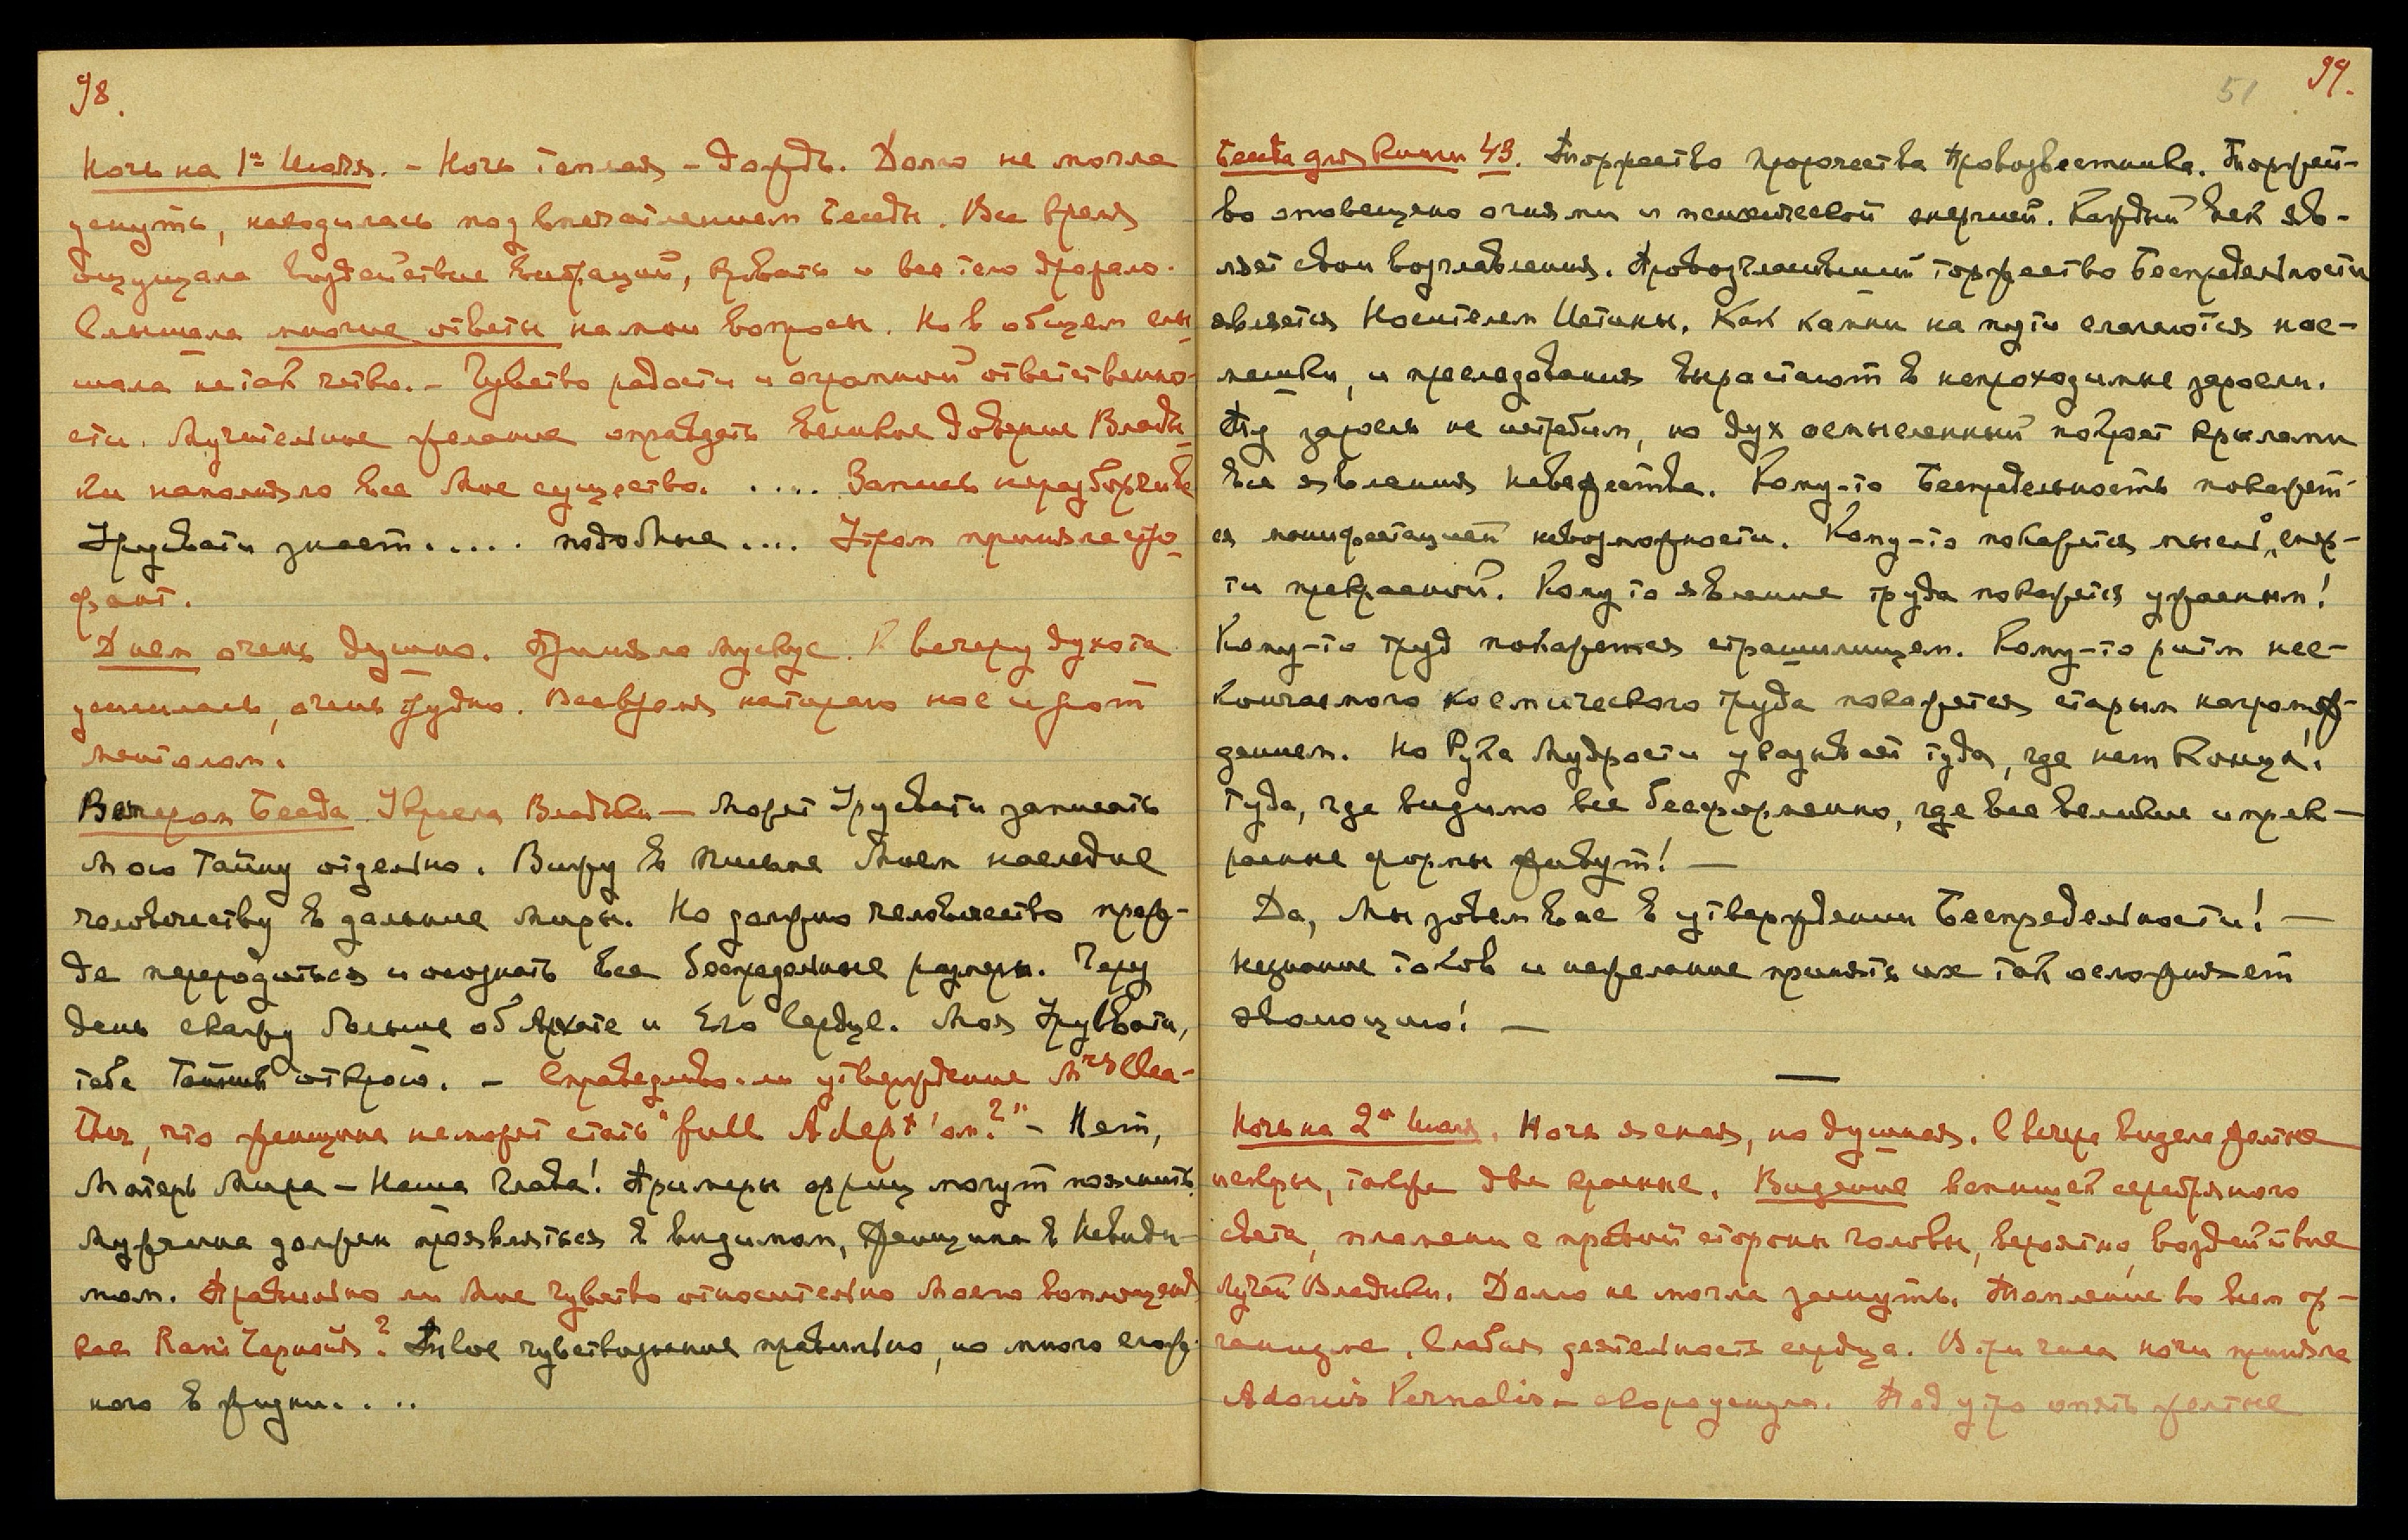 98.
Ночь на 1ое Июля. – Ночь теплая – дождь. Долго не могла
уснуть, находилась под впечатлением Беседы. Все время
ощущала воздействие вибраций, кровать и все тело дрожало.
Слышала многие ответы на мои вопросы. Но в общем слы
шала не так четко. – Чувство радости и огромной ответственно-
сти. Мучительное желание оправдать великое доверие Влады
ки наполняло все мое существо. .... Запись неразборчива
Урусвати знает..... подобные .... Утром приняла стро
фант.
Днем очень душно. Приняла мускус. К вечеру духота
усилилась, очень трудно. Все время натираю нос и рот
ментолом.
Вечером Беседа У кресла Владыки — Может Урусвати записать
Мою Тайну отдельно. Вижу в Письме Моем наследие
человечеству в дальние миры. Но должно человечество преж-
де переродиться и осознать все беспредельные размеры. Через
день скажу больше об Архате и Его Сердце. Моя Урусвати,
тебе Тайны открою. – Справедливо-ли утверждение Mrs Clea-
ther, что женщина не может стать "full Adept'ом?" – Нет,
Матерь Мира – Наша Глава! Примеры жриц могут пояснить.
Мужчина должен проявляться в видимом, Женщина в Невиди-
мом. Правильно ли мое чувство относительно моего воплощения
как Rani Черной? Твое чувствование правильно, но много слож-
ного в жизни. ...
51 99.
Беседа для Книги 43. Торжество пророчества Провозвестника. Торжест-
во оповещено огнями и психической энергией. Каждый век яв-
ляет свои возглавления. Провозгласивший торжество Беспредельности
является Носителем Истины. Как камни на пути слагаются нас-
мешки, и преследования вырастают в непроходимые заросли.
Ту заросль не истребим, но дух осмысленный покроет крылами
все явления невежества. Кому-то Беспредельность покажет-
ся манифестацией невозможности. Кому-то покажется мысль о смер-
ти прекрасной. Кому то явление труда покажется ужасным!
Кому-то труд покажется страшилищем. Кому-то ритм нес-
кончаемого космического труда покажется старым нагромож-
дением. Но Рука Мудрости указывает туда, где нет Конца!
туда, где видимо все бесформенно, где все великие и прек-
расные формы живут! —
Да, Мы зовем вас в утверждении Беспредельности! —
Незнание токов и нежелание принять их так осложняет
эволюцию! —
Ночь на 2ое Июля. Ночь ясная, но душная. С вечера видела желтые
искры, также две красные. Видение вспышек серебряного
света, пламени с правой стороны головы, вероятно, воздействие
Лучей Владыки. Долго не могла заснуть. Томление во всем ор-
ганизме. Слабая деятельность сердца. В три часа ночи приняла
Adonis Vernalis – скоро уснула. Под утро опять желтые